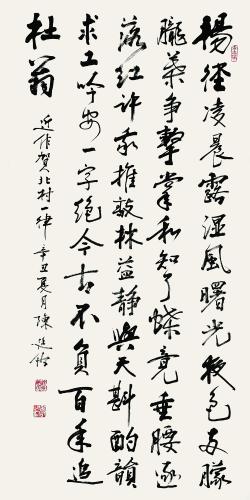 楊徑凌晨露湿風曙光夜色互朦
朧葉爭擊掌和知了蝶竟垂腰逐
落紅许我推敲林益靜與天斟酌韻
求工吟安一字絕今古不負百年追
杜翁
近作賀北村一律辛丑夏月陳廷佑